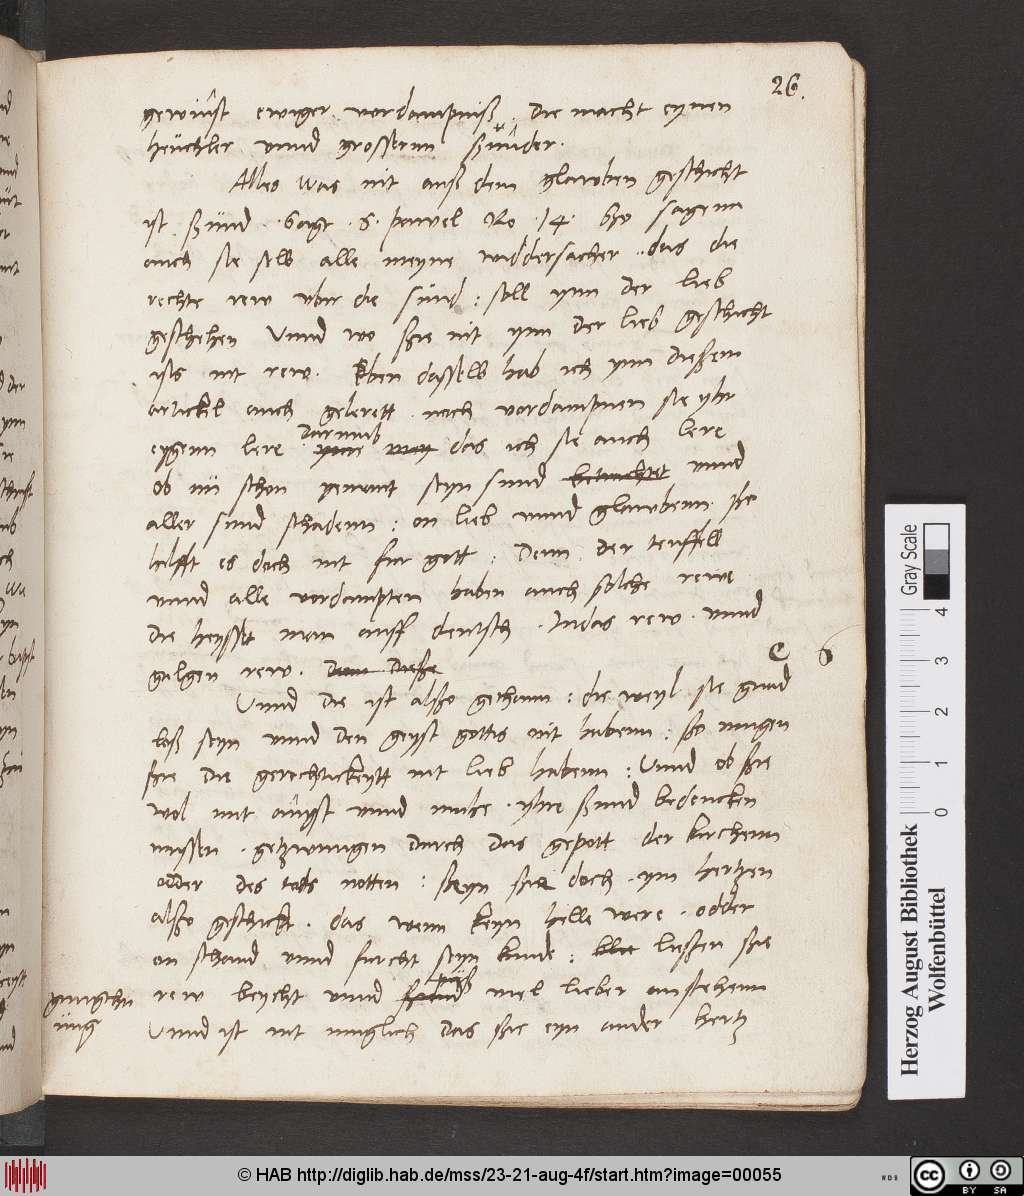 26.
gewinst ewiger vordampniß. die macht eynen
heuchler vnnd grosßernn ßunder.
Alles was nit auß dem glawben geschicht
ist ßund. Sagt .S. pawel Ro .14. ßo sagenn
auch sie selb alle meyne widdersacher .. das die
rechte rew vbir die sünd: soll ynn der lieb
geschehen Vnnd wo ßie nit ynn der lieb geschicht
ists nit rew. Eben dasselb hab ich ynn dießem
artickel auch gelerett. noch vordampnen sie yhr
darumb
eygenn lere das ich sie auch lere
Ob nu schon genant seyn sund betrachtet vnnd
aller sund schadenn: on lieb vnnd glawbenn. ße
hilfft es doch nit fur gott: Denn der teuffell
vnnd alle vordampten haben auch solche rewe
die heysset man auff deutsch. Judas rew. vnnd
galgen rew. Denn dieße
C 6
Vnnd die ist alßo gethann: die weyl sie gnad
loß seyn vnnd den geyst gottis nit habenn: ßo mugen
ßie die gerechtickeytt nit lieb habenn: Vnnd ob ßie
wol mit angst vnnd muhe. yhre ßund bedencken
mussen. getzwungen durch das gepott der kirchenn
odder des tods notten: ßeyn ßie doch .ym hertzen
alßo geschickt. das wenn keyn helle were. odder
on schand vnnd furcht seyn kunde: ließen ßie
puß
rew beycht vnnd viel lieber anstehenn
Vnnd ist nit muglich das ßie eyn ander hertz
Gray Scale
4
3
2
1
0
Herzog August Bibliothek
Wolfenbüttel
© HAB http://diglib.hab.de/mss/23-21-aug-4f/start.htm?image=00055
WDB
cc
BY SA